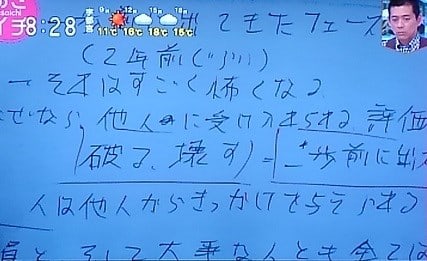 イチ 8:28
9時 12時 15時 18時
11℃ 16℃ 18℃ 15℃
出てきたフェーズ
(2年前ぐらい)
それはすごく怖くなる
ぜなら、他人に受け入れられる評価
(破る、壊す)=一歩前に出
人は他人からきっかけを与えられる
員と、そして大事な人とも全ては